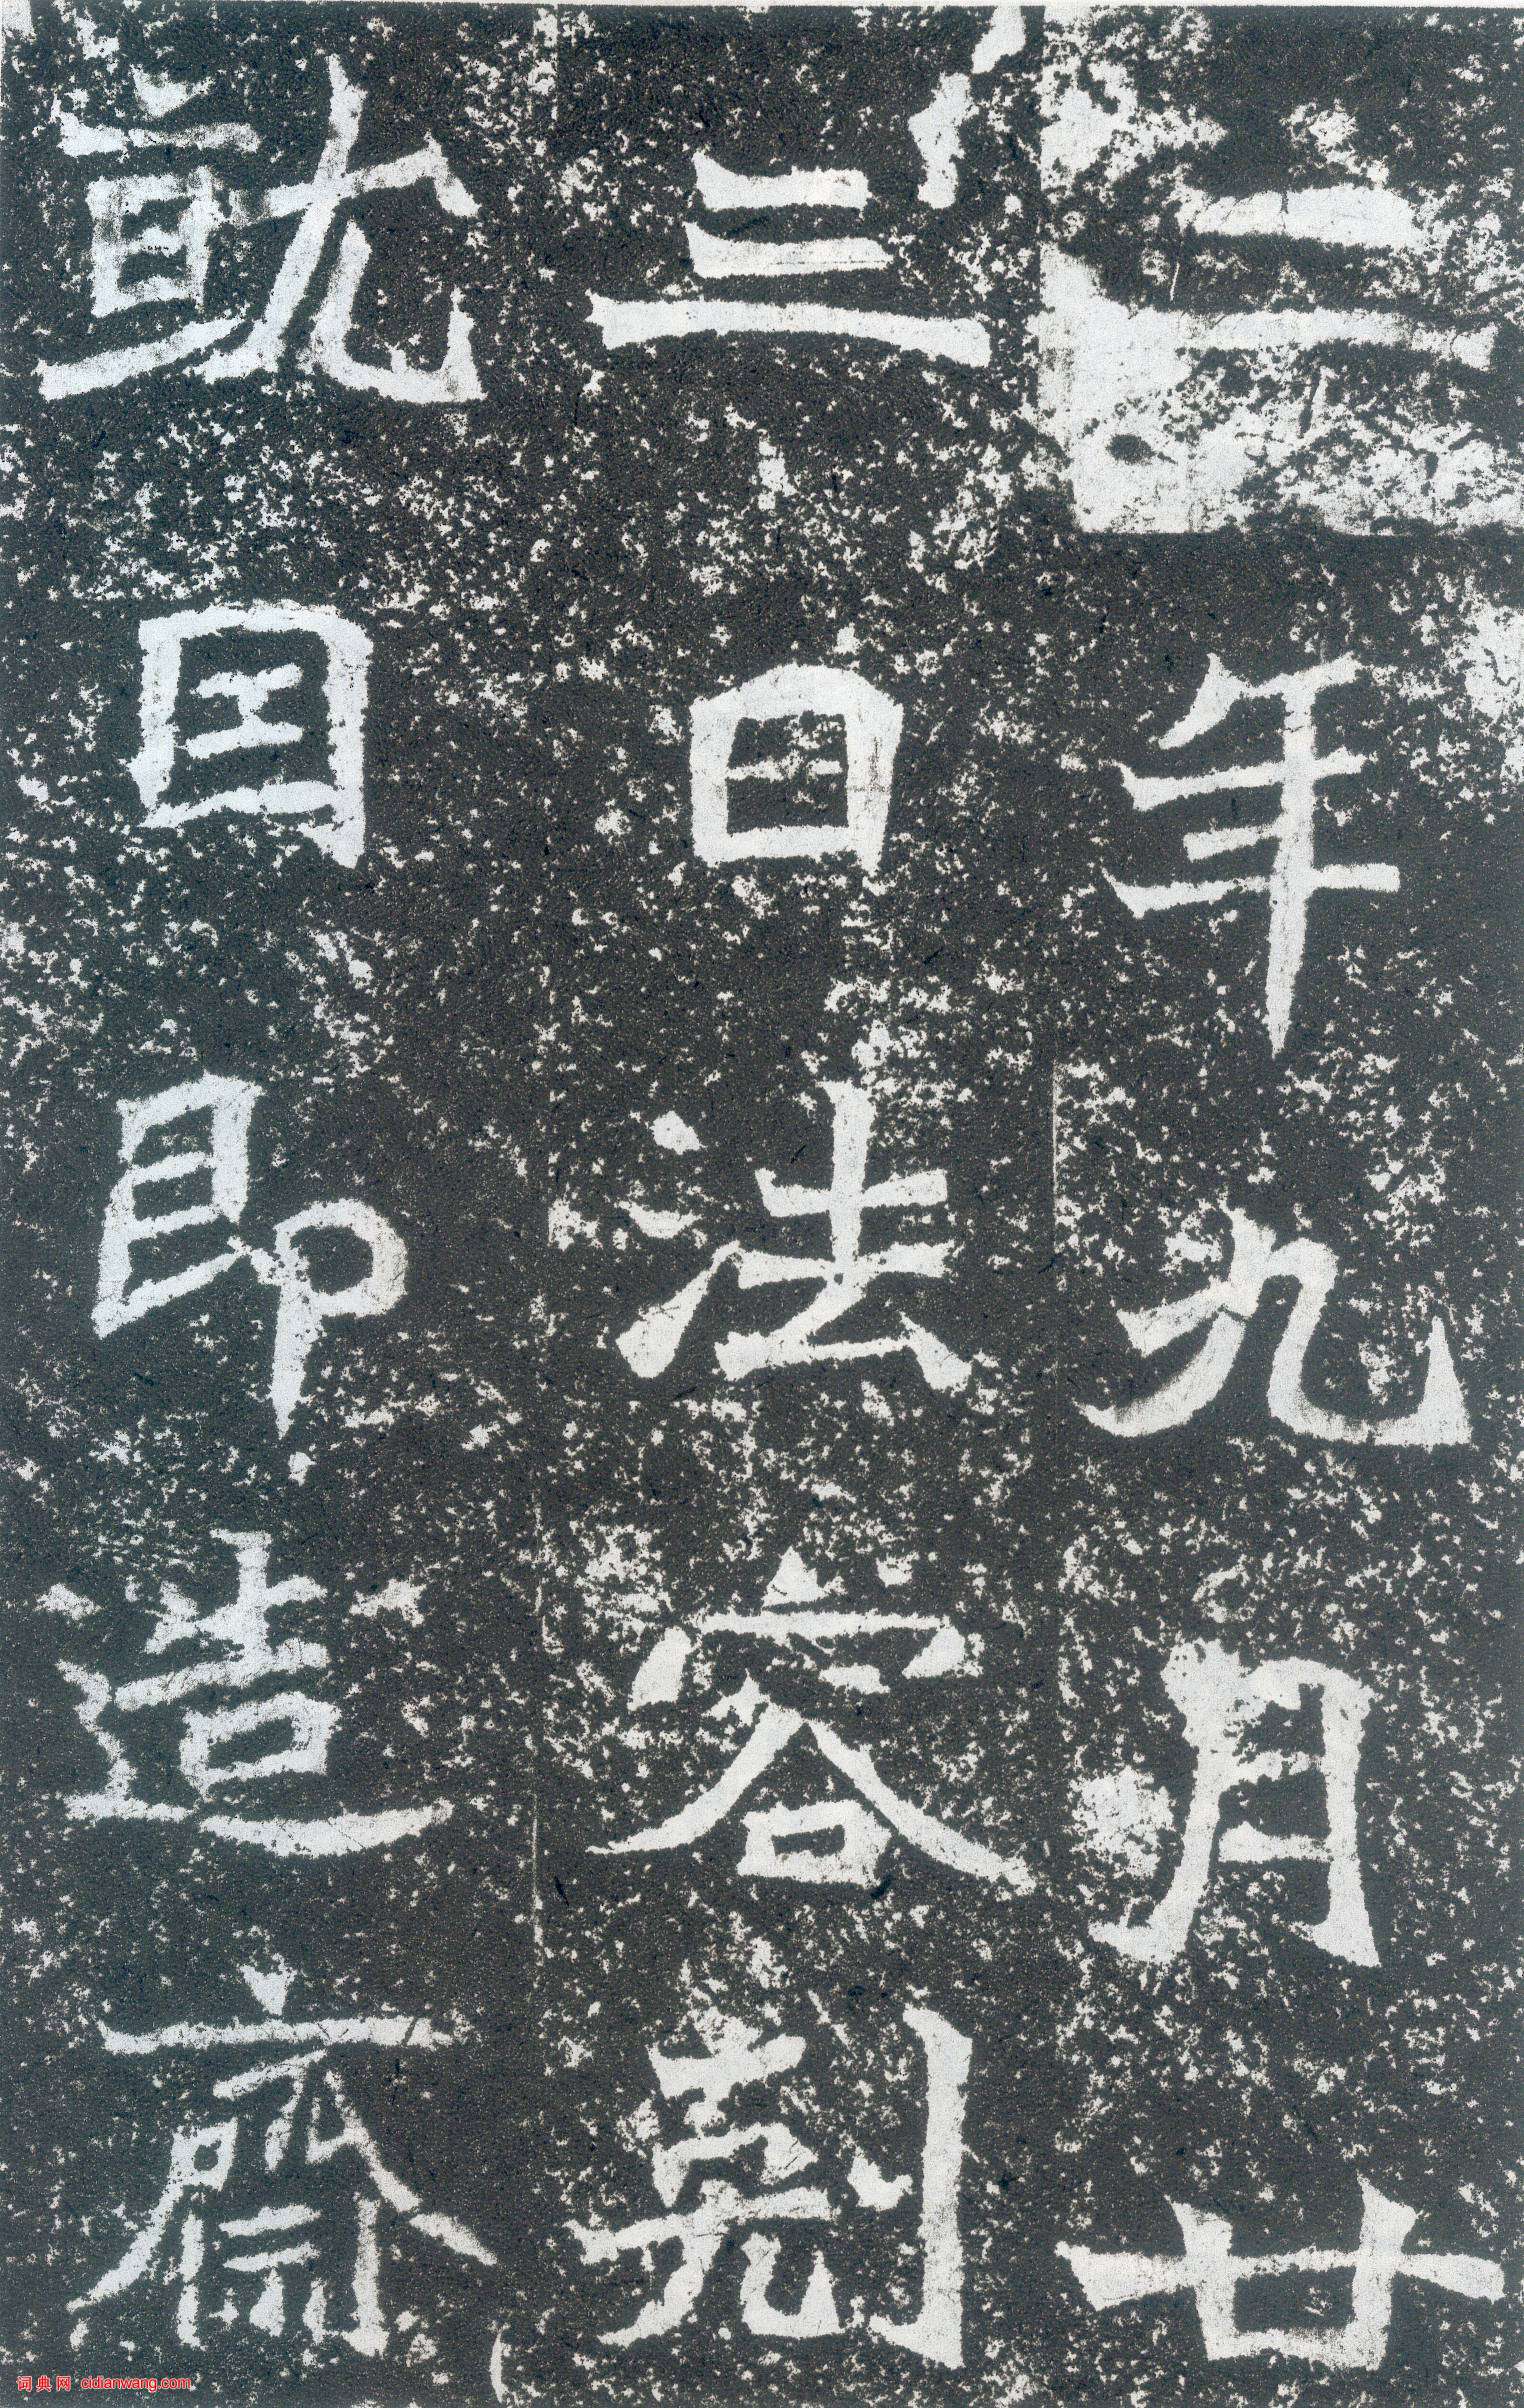 二年九月廿
三日法容剋
就因即造齋
词典网 cidianwang.com